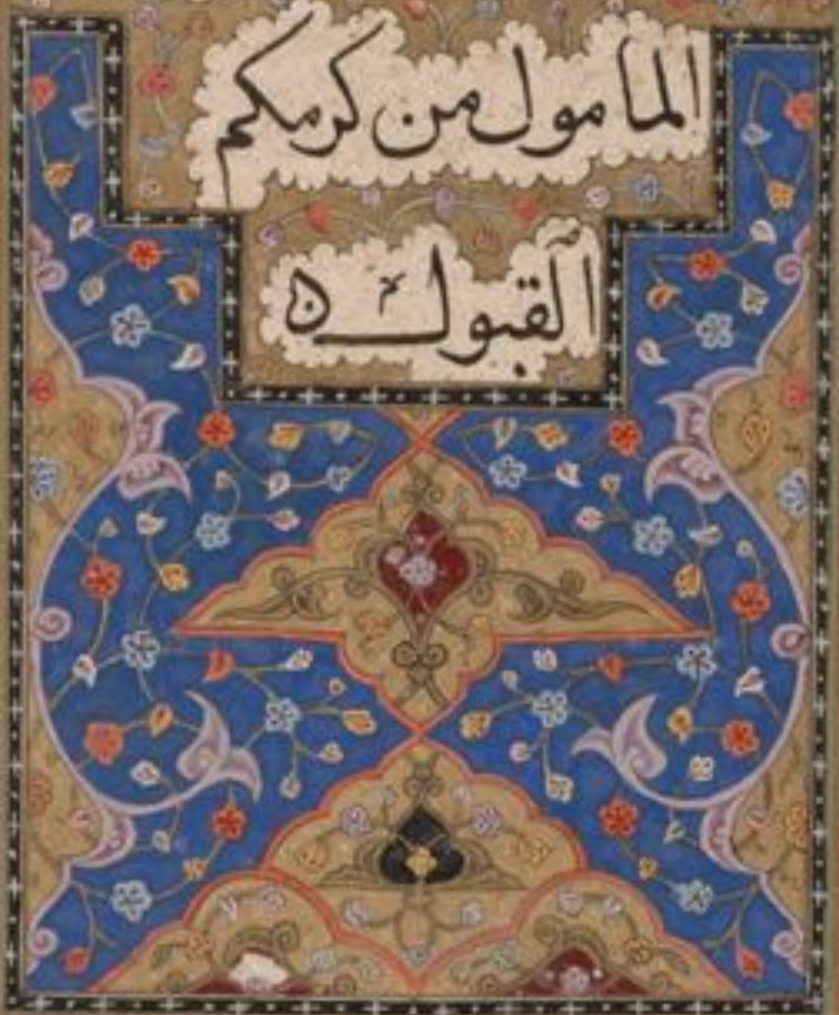 المامول من كرمكم
القبول